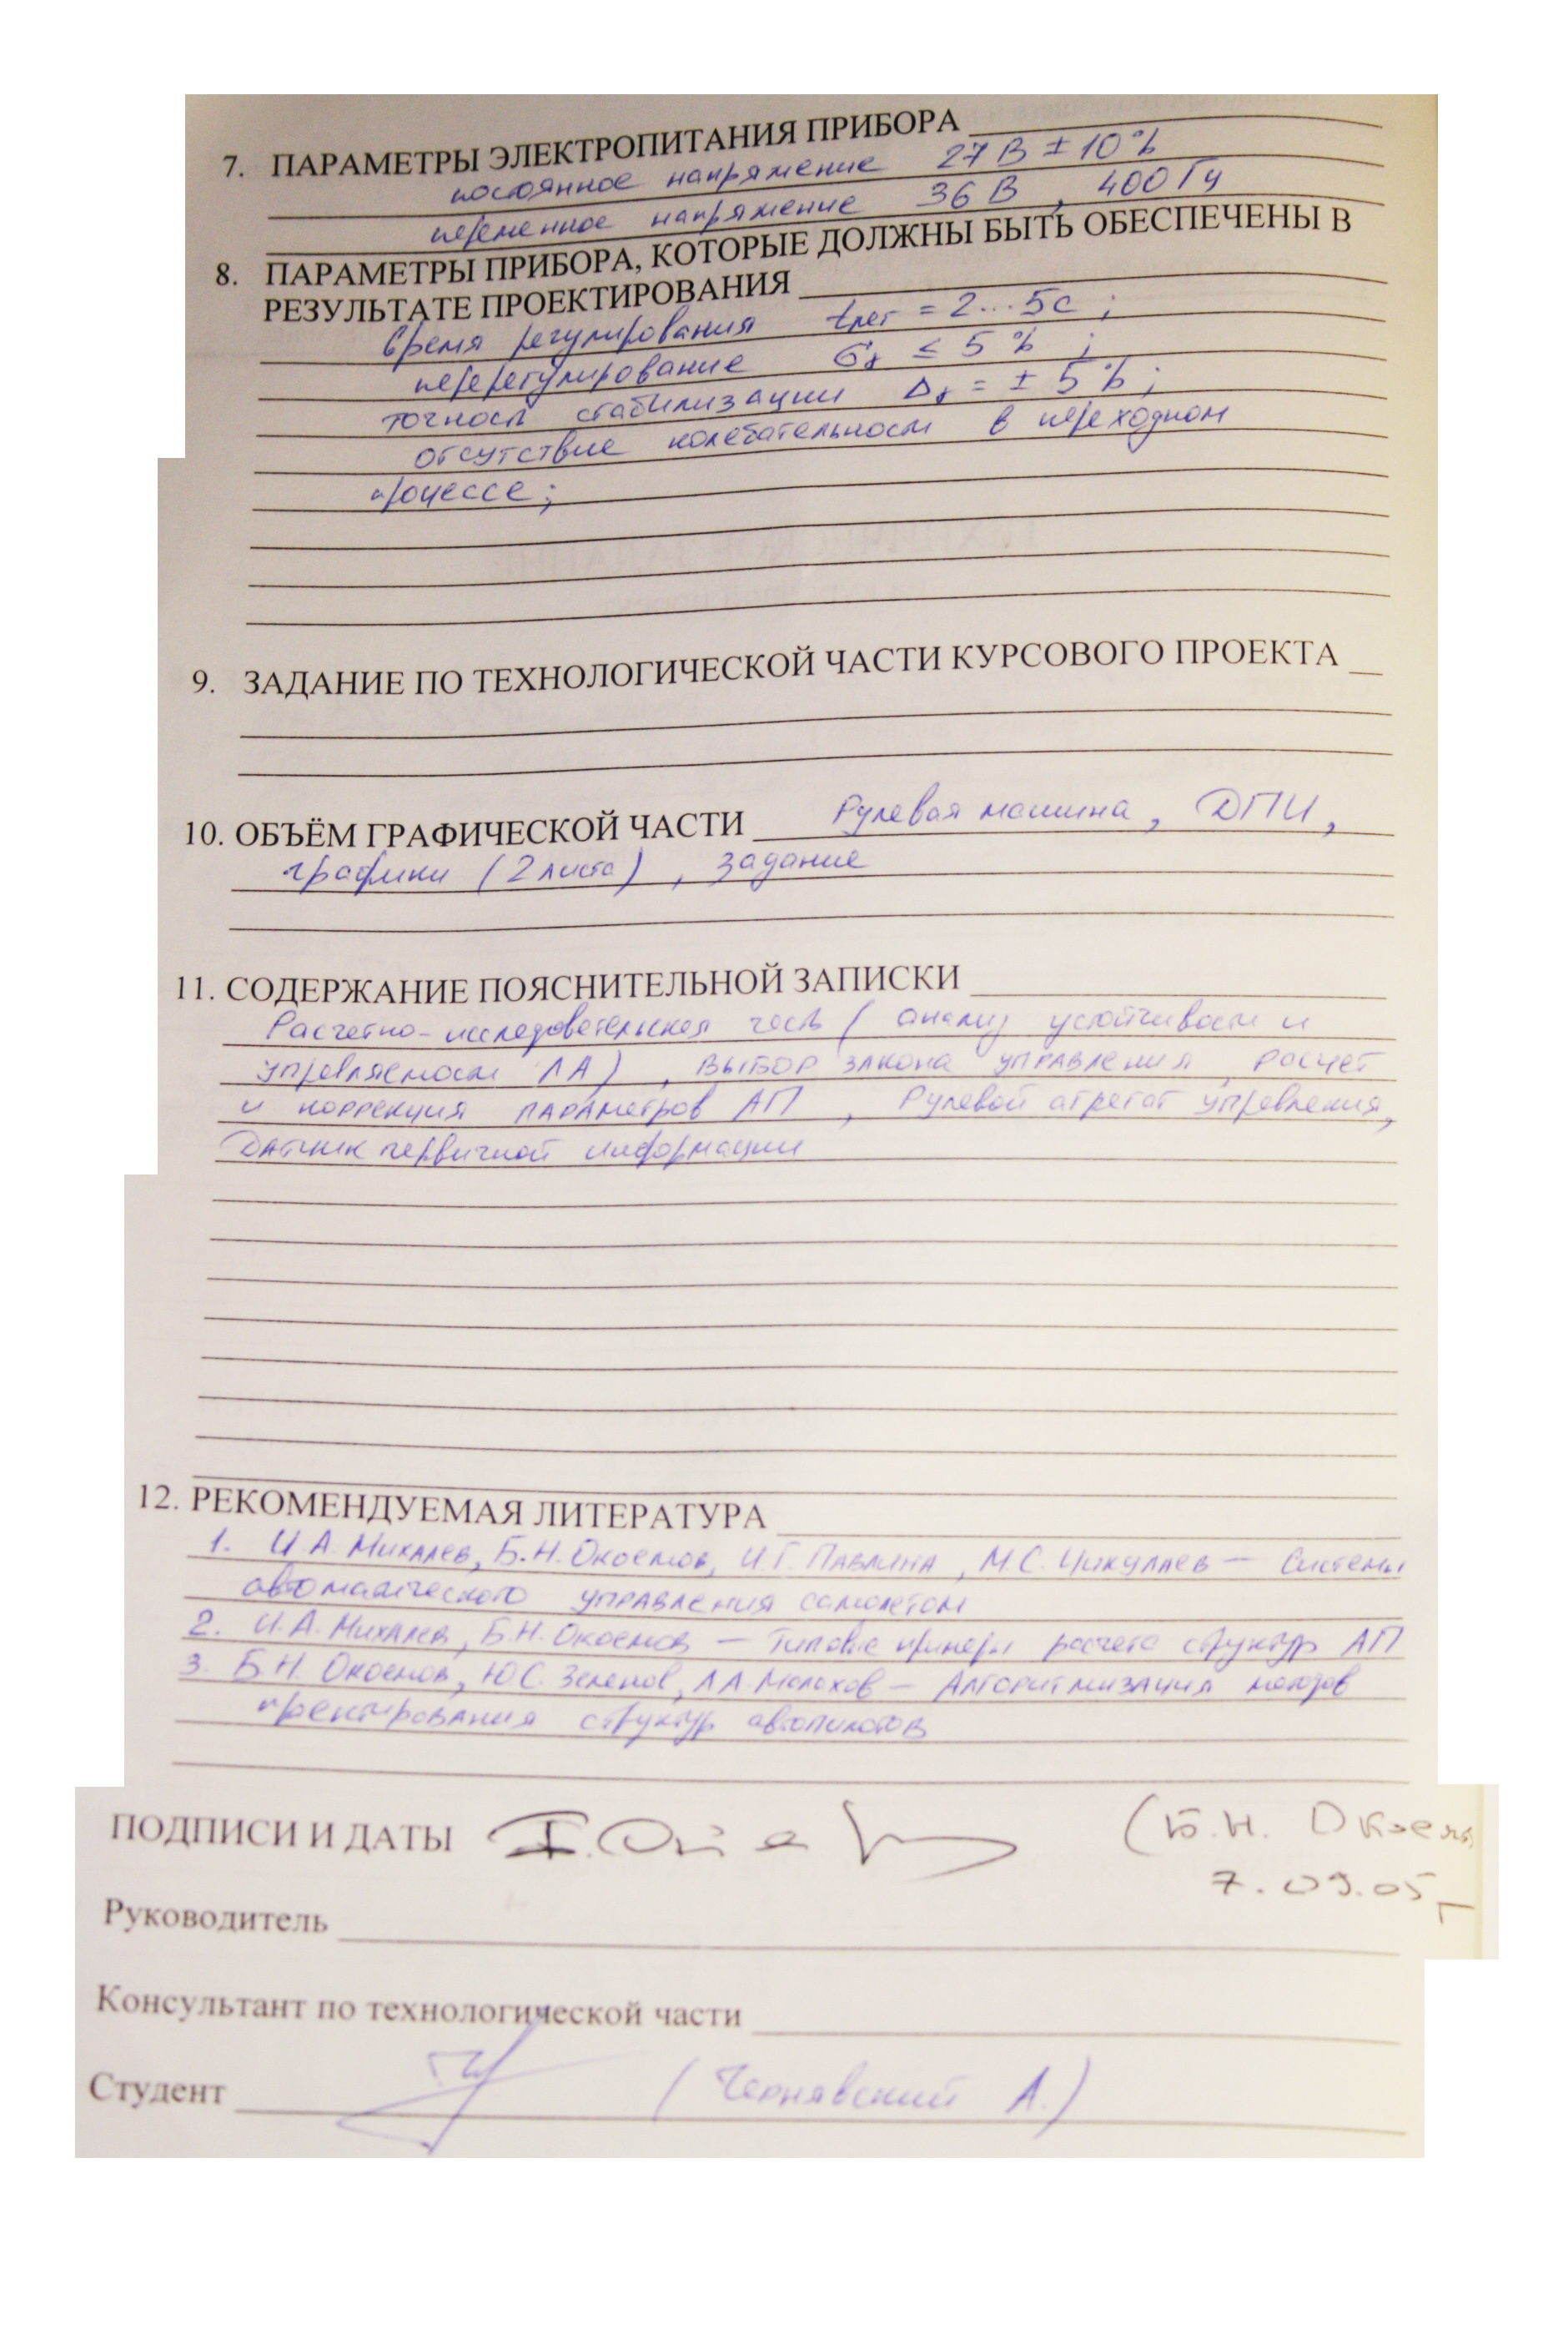 7. ПАРАМЕТРЫ ЭЛЕКТРОПИТАНИЯ ПРИБОРА
постоянное напряжение 27 В ± 10 %
переменное напряжение 36 В, 400 Гц
8. ПАРАМЕТРЫ ПРИБОРА, КОТОРЫЕ ДОЛЖНЫ БЫТЬ ОБЕСПЕЧЕНЫ В
РЕЗУЛЬТАТЕ ПРОЕКТИРОВАНИЯ
время регулирования tрег = 2...5с ;
перерегулирование σγ ≤ 5 % ;
точность стабилизации Δγ = ± 5 % ;
отсутствие колебательности в переходном
процессе;
9. ЗАДАНИЕ ПО ТЕХНОЛОГИЧЕСКОЙ ЧАСТИ КУРСОВОГО ПРОЕКТА
10. ОБЪЁМ ГРАФИЧЕСКОЙ ЧАСТИ Рулевая машина, ДПИ,
графики (2 листа), задание
11. СОДЕРЖАНИЕ ПОЯСНИТЕЛЬНОЙ ЗАПИСКИ
Расчетно-исследовательская часть (анализ устойчивости и
управляемости ЛА), выбор закона управления, расчет
и коррекция параметров АП, Рулевой агрегат управления,
Датчик первичной информации
12. РЕКОМЕНДУЕМАЯ ЛИТЕРАТУРА
1. И.А. Михалев, Б.Н. Окоемов, И.Г. Павлина, М.С. Чикулаев — Системы
автоматического управления самолетом
2. И.А. Михалев, Б.Н. Окоемов — Типовые примеры расчета структур АП
3. Б.Н. Окоемов, Ю.С. Зеленов, Л.А. Малахов — Алгоритмизация методов
проектирования структур автопилотов
ПОДПИСИ И ДАТЫ (Б.Н. Окоемов
7.09.05г
Руководитель
Консультант по технологической части
Студент (Чернявский А.)